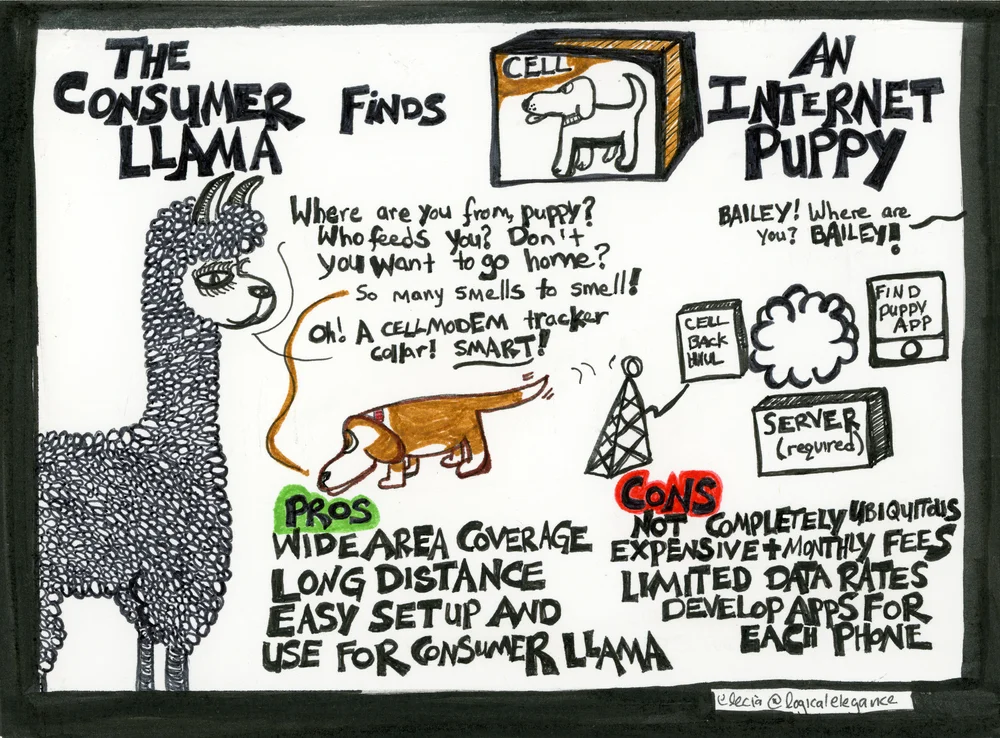 THE
CONSUMER
LLAMA
FINDS
CELL
AN
INTERNET
PUPPY
Where are you from, puppy?
Who feeds you? Don't
you want to go home?
So many smells to smell!
Oh! A CELLMODEM tracker
collar! SMART!
BAILEY! Where are
you? BAILEY!
CELL
BACK
HAUL
FIND
PUPPY
APP
SERVER
(required)
PROS
WIDE AREA COVERAGE
LONG DISTANCE
EASY SETUP AND
USE FOR CONSUMER LLAMA
CONS
NOT COMPLETELY UBIQUITOUS
EXPENSIVE + MONTHLY FEES
LIMITED DATA RATES
DEVELOP APPS FOR
EACH PHONE
elecia @logicalelegance